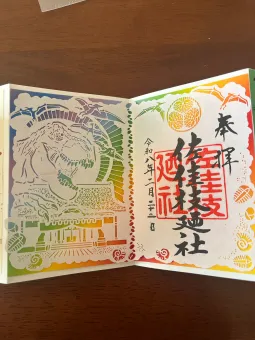 奉拝
佐佳枝廼社
令和八年二月二十二日
佐佳枝
廼社